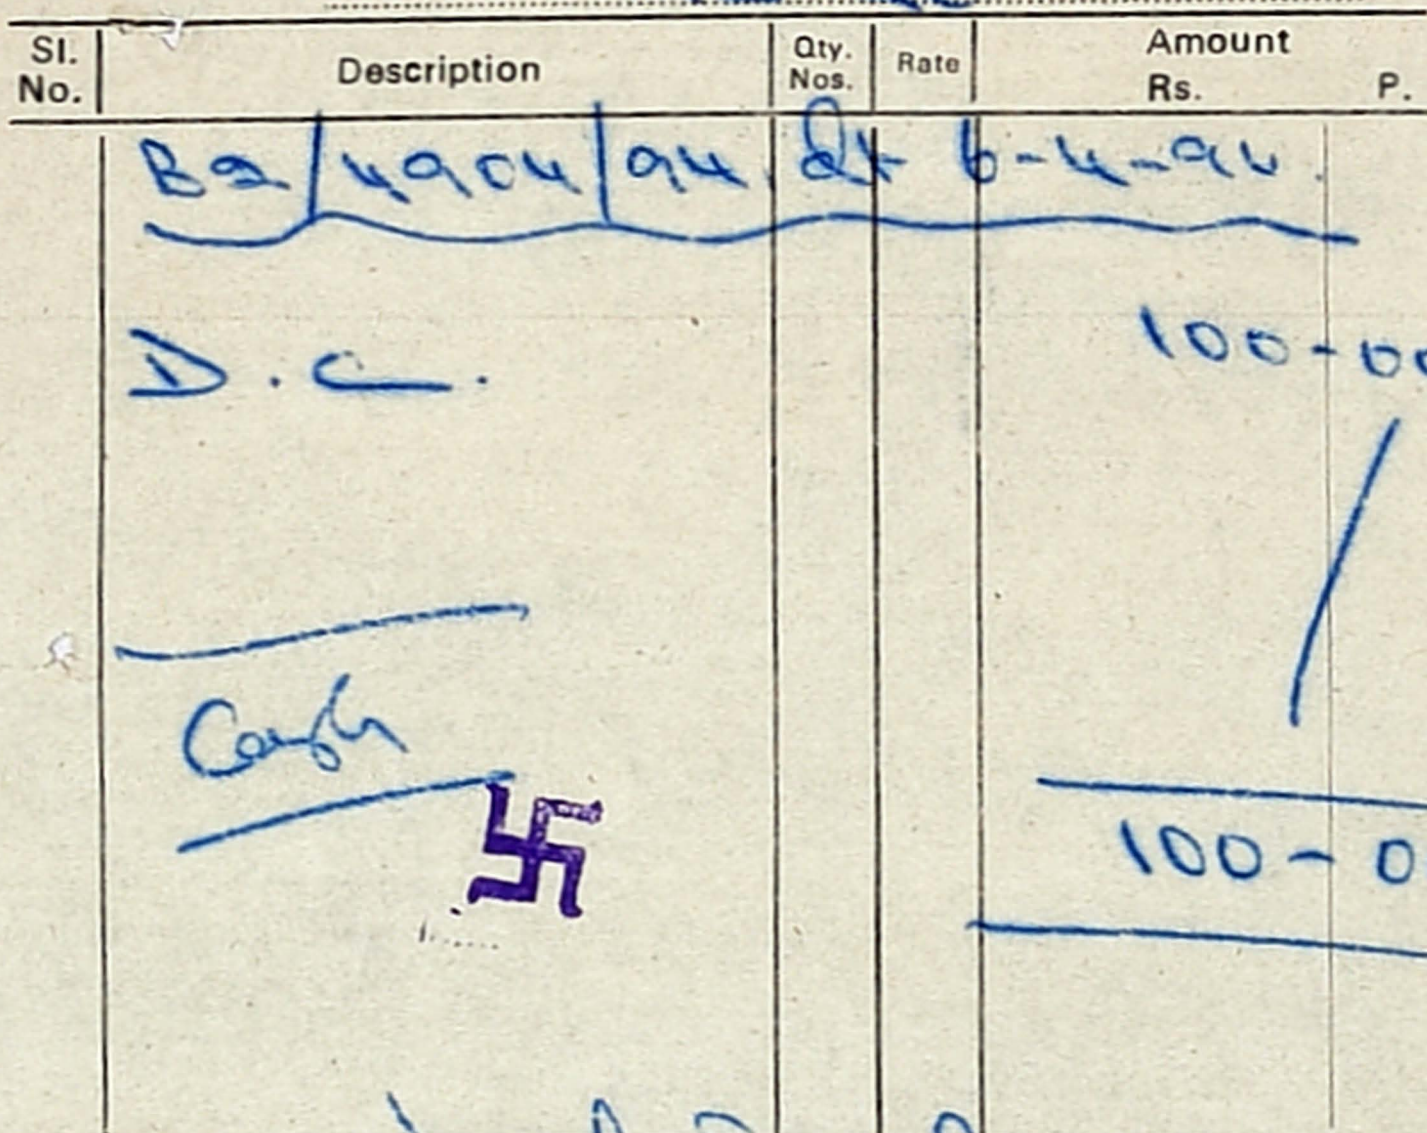 Sl. No. Description Qty. Nos. Rate Amount Rs. P.
B2/4904/94 Dt 6-4-94.
D.C. 100-00
Cash
100-0